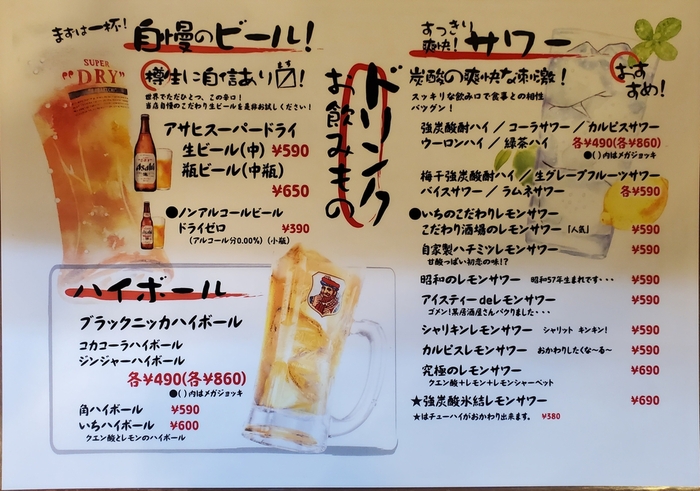 まずは一杯!
自慢のビール!
SUPER
"DRY"
樽生に自信あり〼!
ます
世界でただひとつ、この辛口!
当店自慢のこだわり生ビールを是非お試しください!
アサヒスーパードライ
生ビール(中) ¥590
瓶ビール(中瓶)
¥650
●ノンアルコールビール
ドライゼロ ¥390
(アルコール分0.00%) (小瓶)
ドリンク
お飲みもの
ハイボール
ブラックニッカハイボール
コカコーラハイボール
ジンジャーハイボール
各¥490(各¥860)
●( )内はメガジョッキ
角ハイボール ¥590
いちハイボール ¥600
クエン酸とレモンのハイボール
すっきり
爽快!
サワー
炭酸の爽快な刺激!
おすすめ!
スッキリな飲み口で食事との相性
バツグン!
強炭酸酎ハイ / コーラサワー / カルピスサワー
ウーロンハイ / 緑茶ハイ 各¥490(各¥860)
●( )内はメガジョッキ
梅干強炭酸酎ハイ / 生グレープフルーツサワー
バイスサワー / ラムネサワー 各¥590
●いちのこだわりレモンサワー
こだわり酒場のレモンサワー「人気」 ¥590
自家製ハチミツレモンサワー ¥590
甘酸っぱい初恋の味!?
昭和のレモンサワー 昭和57年生まれです・・・ ¥590
アイスティーdeレモンサワー ¥590
ゴメン!某居酒屋さんパクりました・・・
シャリキンレモンサワー シャリット キンキン! ¥590
カルピスレモンサワー おかわりしたくな~る~ ¥590
究極のレモンサワー ¥690
クエン酸+レモン+レモンシャーベット
★強炭酸氷結レモンサワー ¥690
★はチューハイがおかわり出来ます。 ¥380